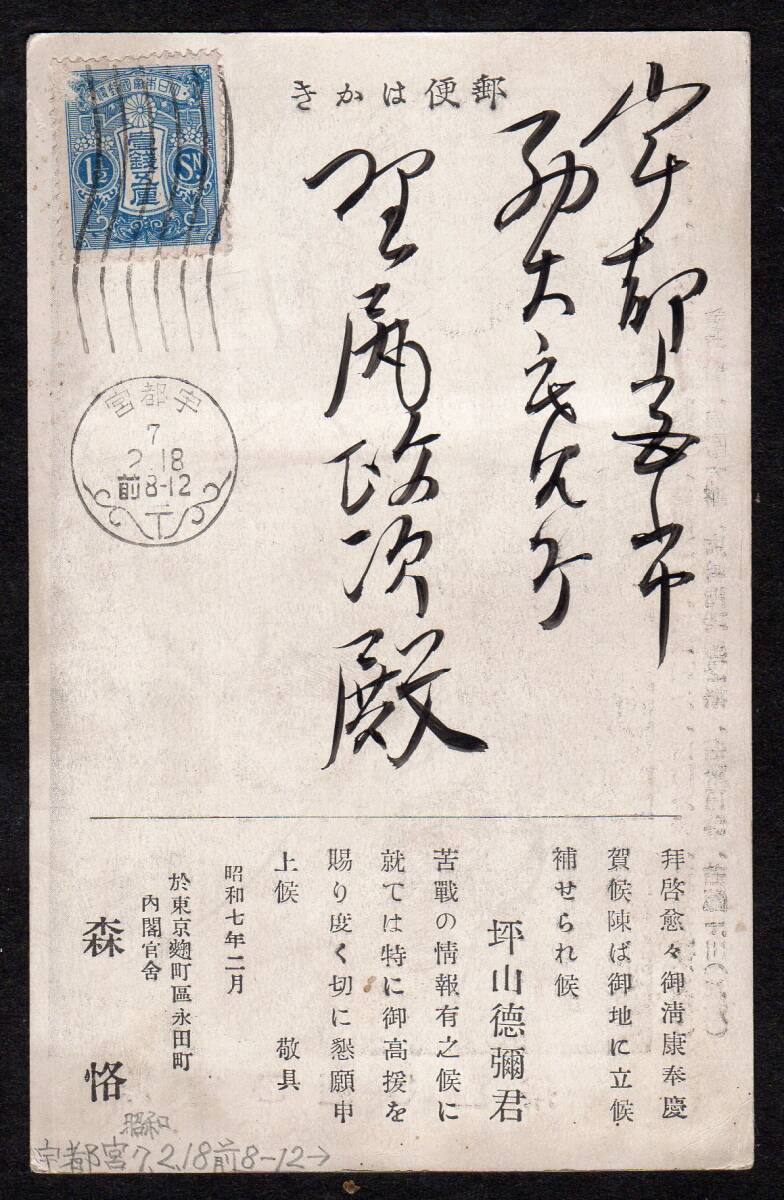 郵便はかき
大日本帝國郵便
壹錢五厘
1½
SN
宇都宮市
野尻政次殿
宇都宮
7
2.18
前8-12
拜啓愈々御淸康奉慶
賀候陳ば御地に立候
補せられ候
坪山德彌君
苦戰の情報有之候に
就ては特に御高援を
賜り度く切に懇願申
上候　敬具
昭和七年二月
於東京麴町區永田町
內閣官舍
森恪
昭和
宇都宮7.2.18前8-12→